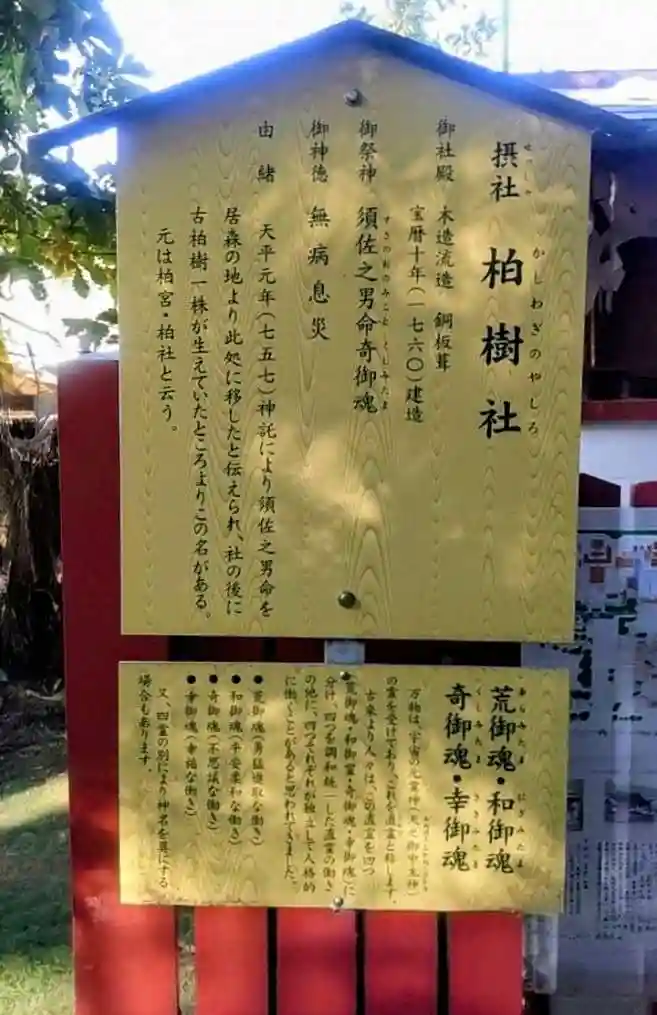 摂社 柏樹社
せっしゃ かしわぎのやしろ
御社殿 木造流造 銅板葺
宝暦十年(一七六〇)建造
御祭神 須佐之男命奇御魂
すさのおのみこと くしみたま
御神徳 無病息災
由緒 天平元年(七五七)神託により須佐之男命を
居森の地より此処に移したと伝えられ、社の後に
古柏樹一株が生えていたところよりこの名がある。
元は柏宮・柏社と云う。
荒御魂・和御魂
あらみたま にぎみたま
奇御魂・幸御魂
くしみたま さきみたま
万物は、宇宙の元霊神(天之御中主神)
の霊を受けており、これを直霊と称します。
古来より人々は、この直霊を四つ
荒御魂・和御霊・奇御魂・幸御魂、に
分け、四つを調和統一した直霊の働き
の他に、四つそれぞれが独立して人格的
に働くことがあると思われてきました。
●荒御魂(勇猛進取な働き)
●和御魂(平安柔和な働き)
●奇御魂(不思議な働き)
●幸御魂(幸福な働き)
又、四霊の別により神名を異にする
場合もあります。